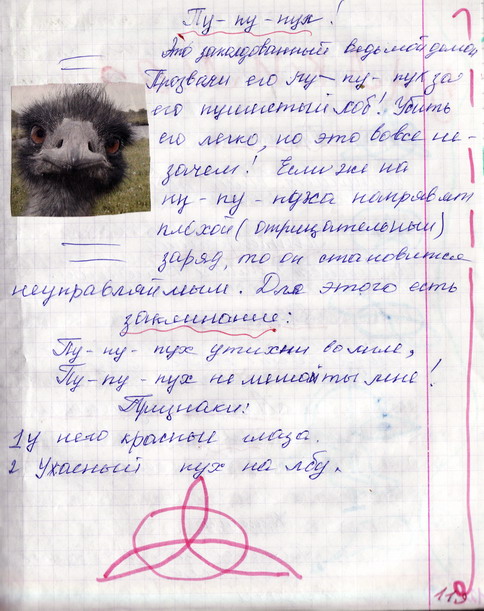 Пу-пу-пух!
Это заколдованный ведьмой демон
Прозвали его пу-пу-пух за
его пушистый лоб! Убить
его легко, но это вовсе не-
зачем! Если же на
пу-пу-пуха направят
плохой (отрицательный)
заряд, то он становится
неуправляймым. Для этого есть
заклинание:
Пу-пу-пух утихни во мгле,
Пу-пу-пух не мешай ты мне!
Признаки:
1 у него красные глаза.
2 Ужасный пух на лбу.
119